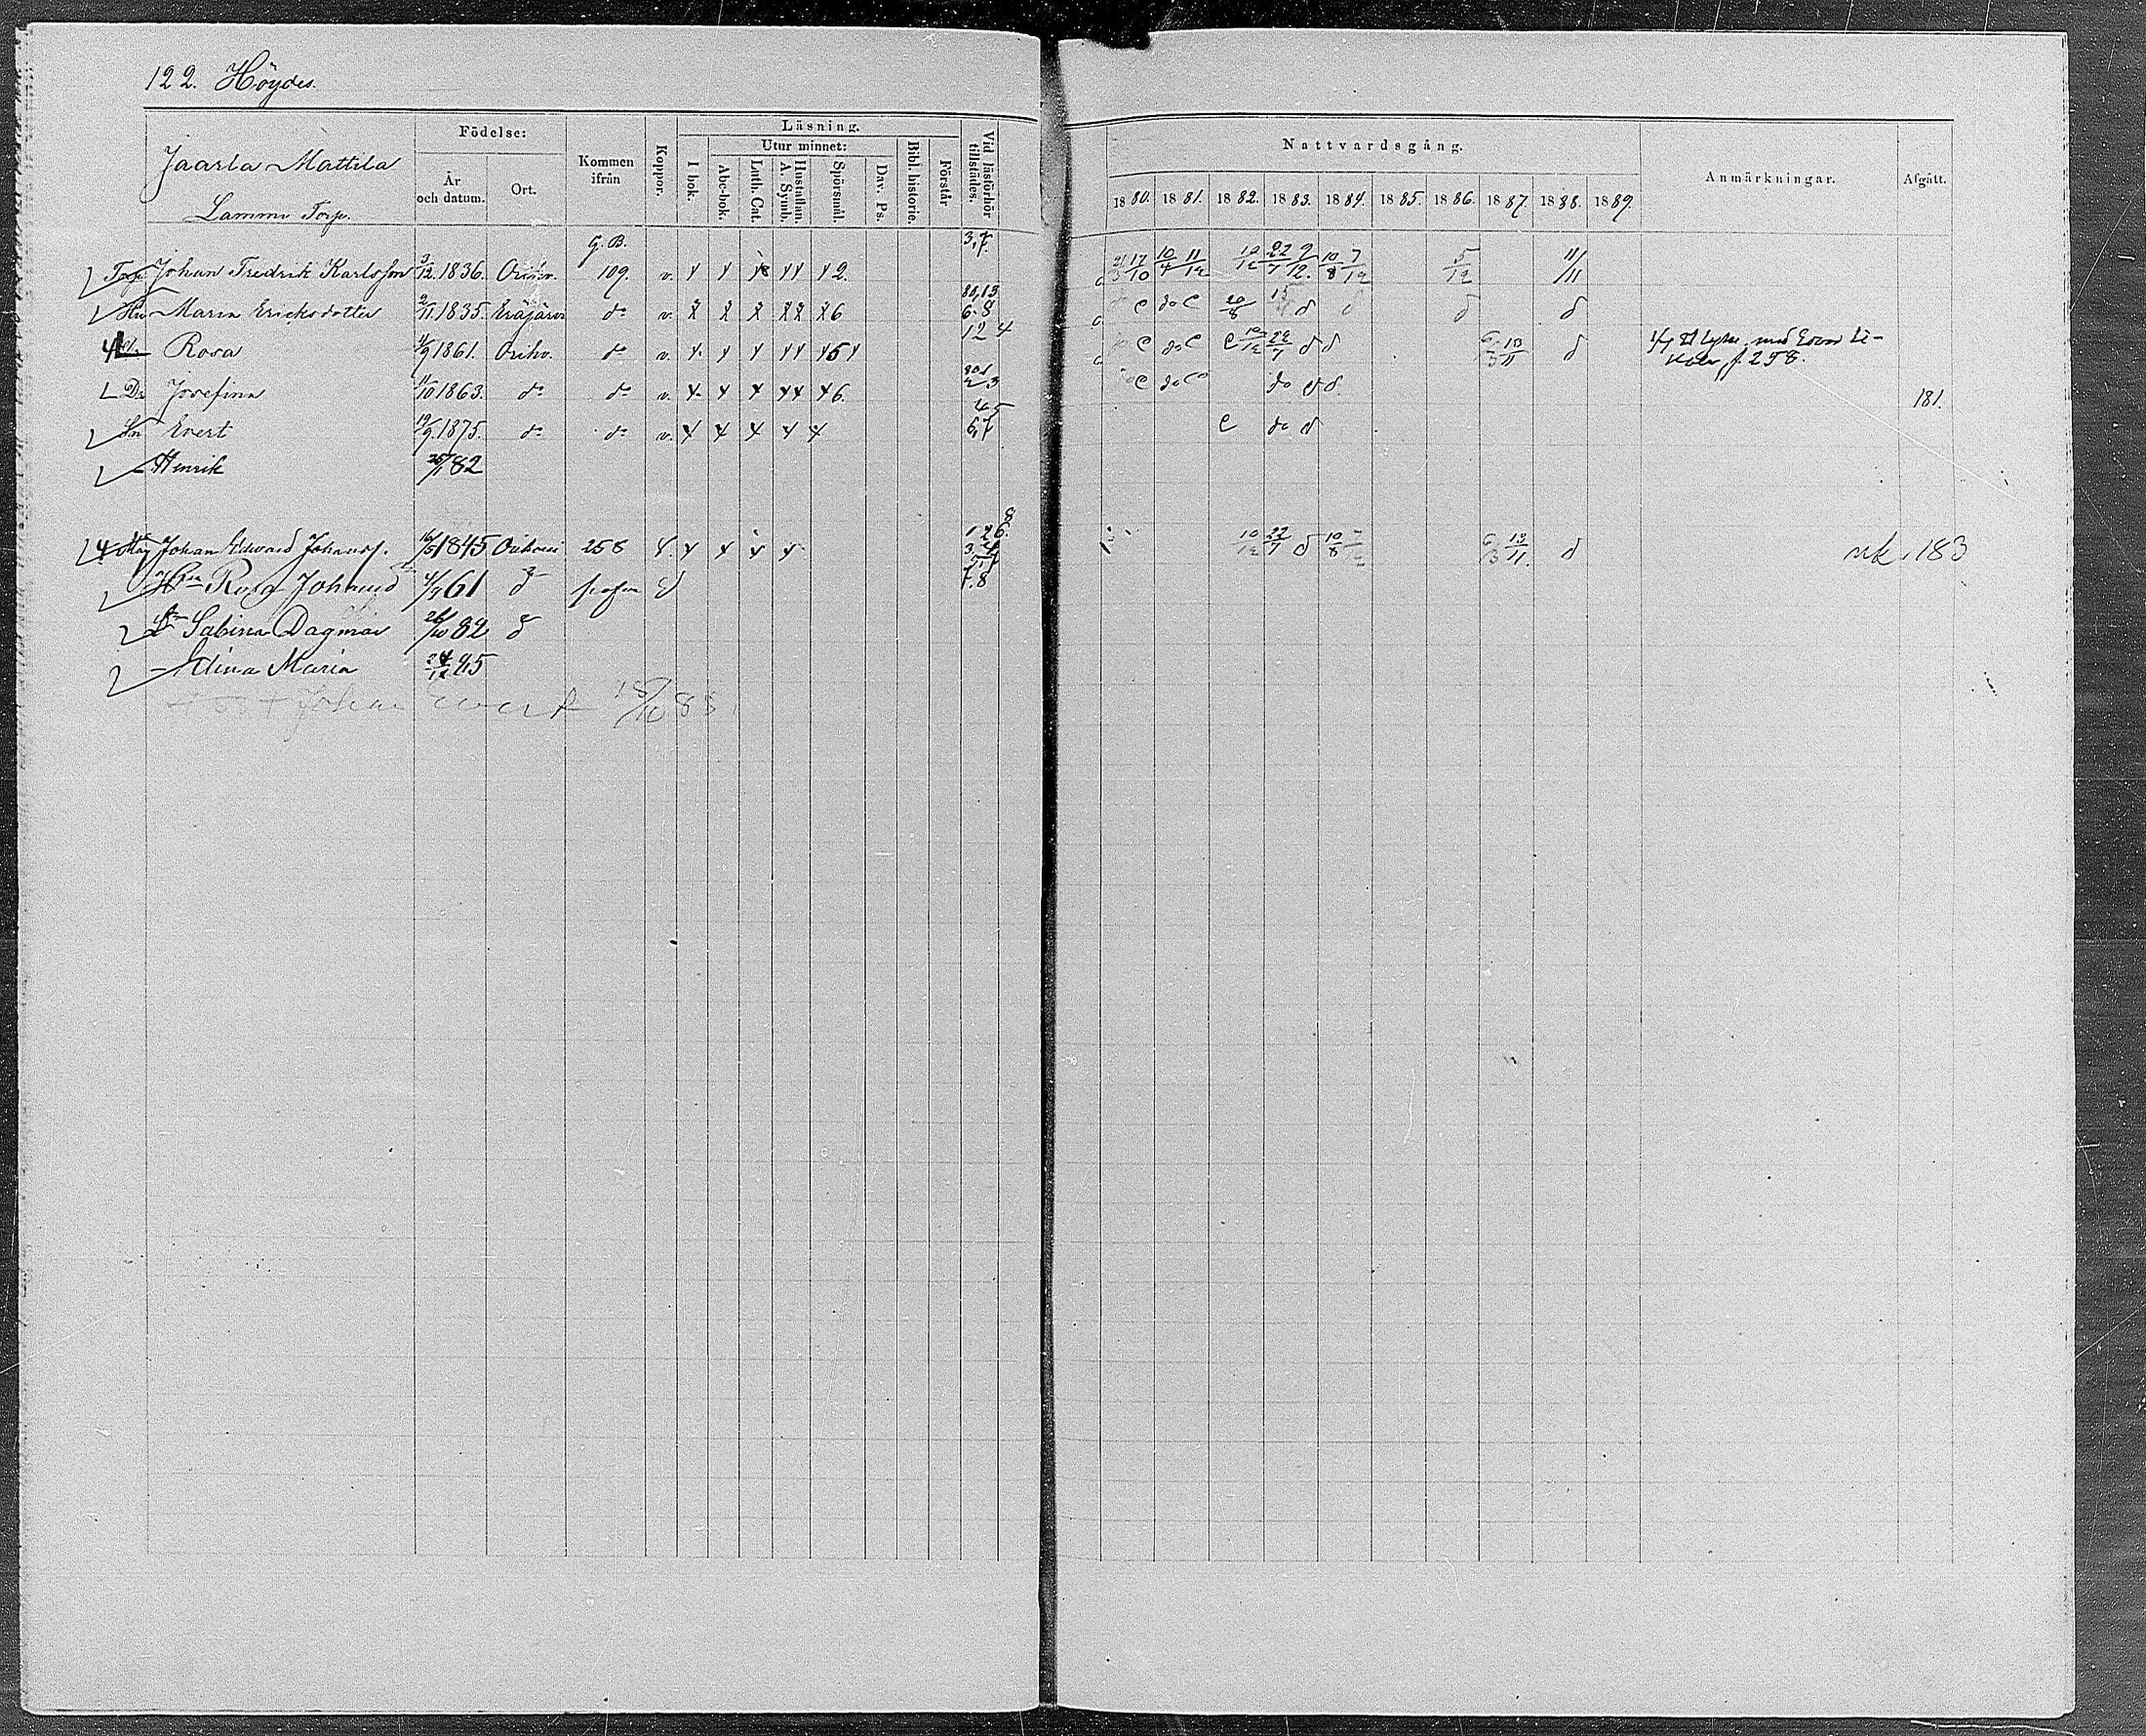 122. Höydes.
Jaarla Mattila
Lammi Torp.
Födelse:
År och datum.
Ort.
Kommen ifrån
Koppor.
Läsning.
I bok.
Utur minnet:
Abc-bok.
Luth. Cat.
Hustaflan. A. Symb.
Spörsmål.
Dav. Ps.
Bibl. historie.
Förstår
Vid läsförhör tillstädes.
Nattvardsgång.
1880. 1881. 1882. 1883. 1884. 1885. 1886. 1887. 1888. 1889.
Anmärkningar.
Afgått.
G. B. 3,7.
Torp. Johan Fredrik Karlsson 3/12 1836. Orihv. 109. v. 2. 21/3 17/10 10/4 11/12 10/12 22/7 9/12. 10/8 7/12 5/12 11/11
Hu Maria Ericksdotter 2/11 1835. Eräjärvi do v. 6 6.8 do e do e 20/8 15 d d d d
Rosa 4/9 1861. Orihv. do v. 5 1 2 4 e do e e 10/12 22/7 d d 6/3 13/11 d
f. 258.
Dr Josefina 11/10 1863. do do v. 6. 2 3 do e do e do d d. 181.
Sn Evert 19/9 1875. do do v. 4 5 6,7 e do d
Henrik 82
Måg Johan Edward Johanss. 16/5 1845 Orihvesi 258 10/12 22/7 d 10/8 7/12 6/3 13/11. d uk. 183
Hu Rosa Johansd 4/9 61 d 7.8
Dr Sabina Dagmar 26/10 82 d
Alina Maria 24/12 85
Johan Evert 18/10 88